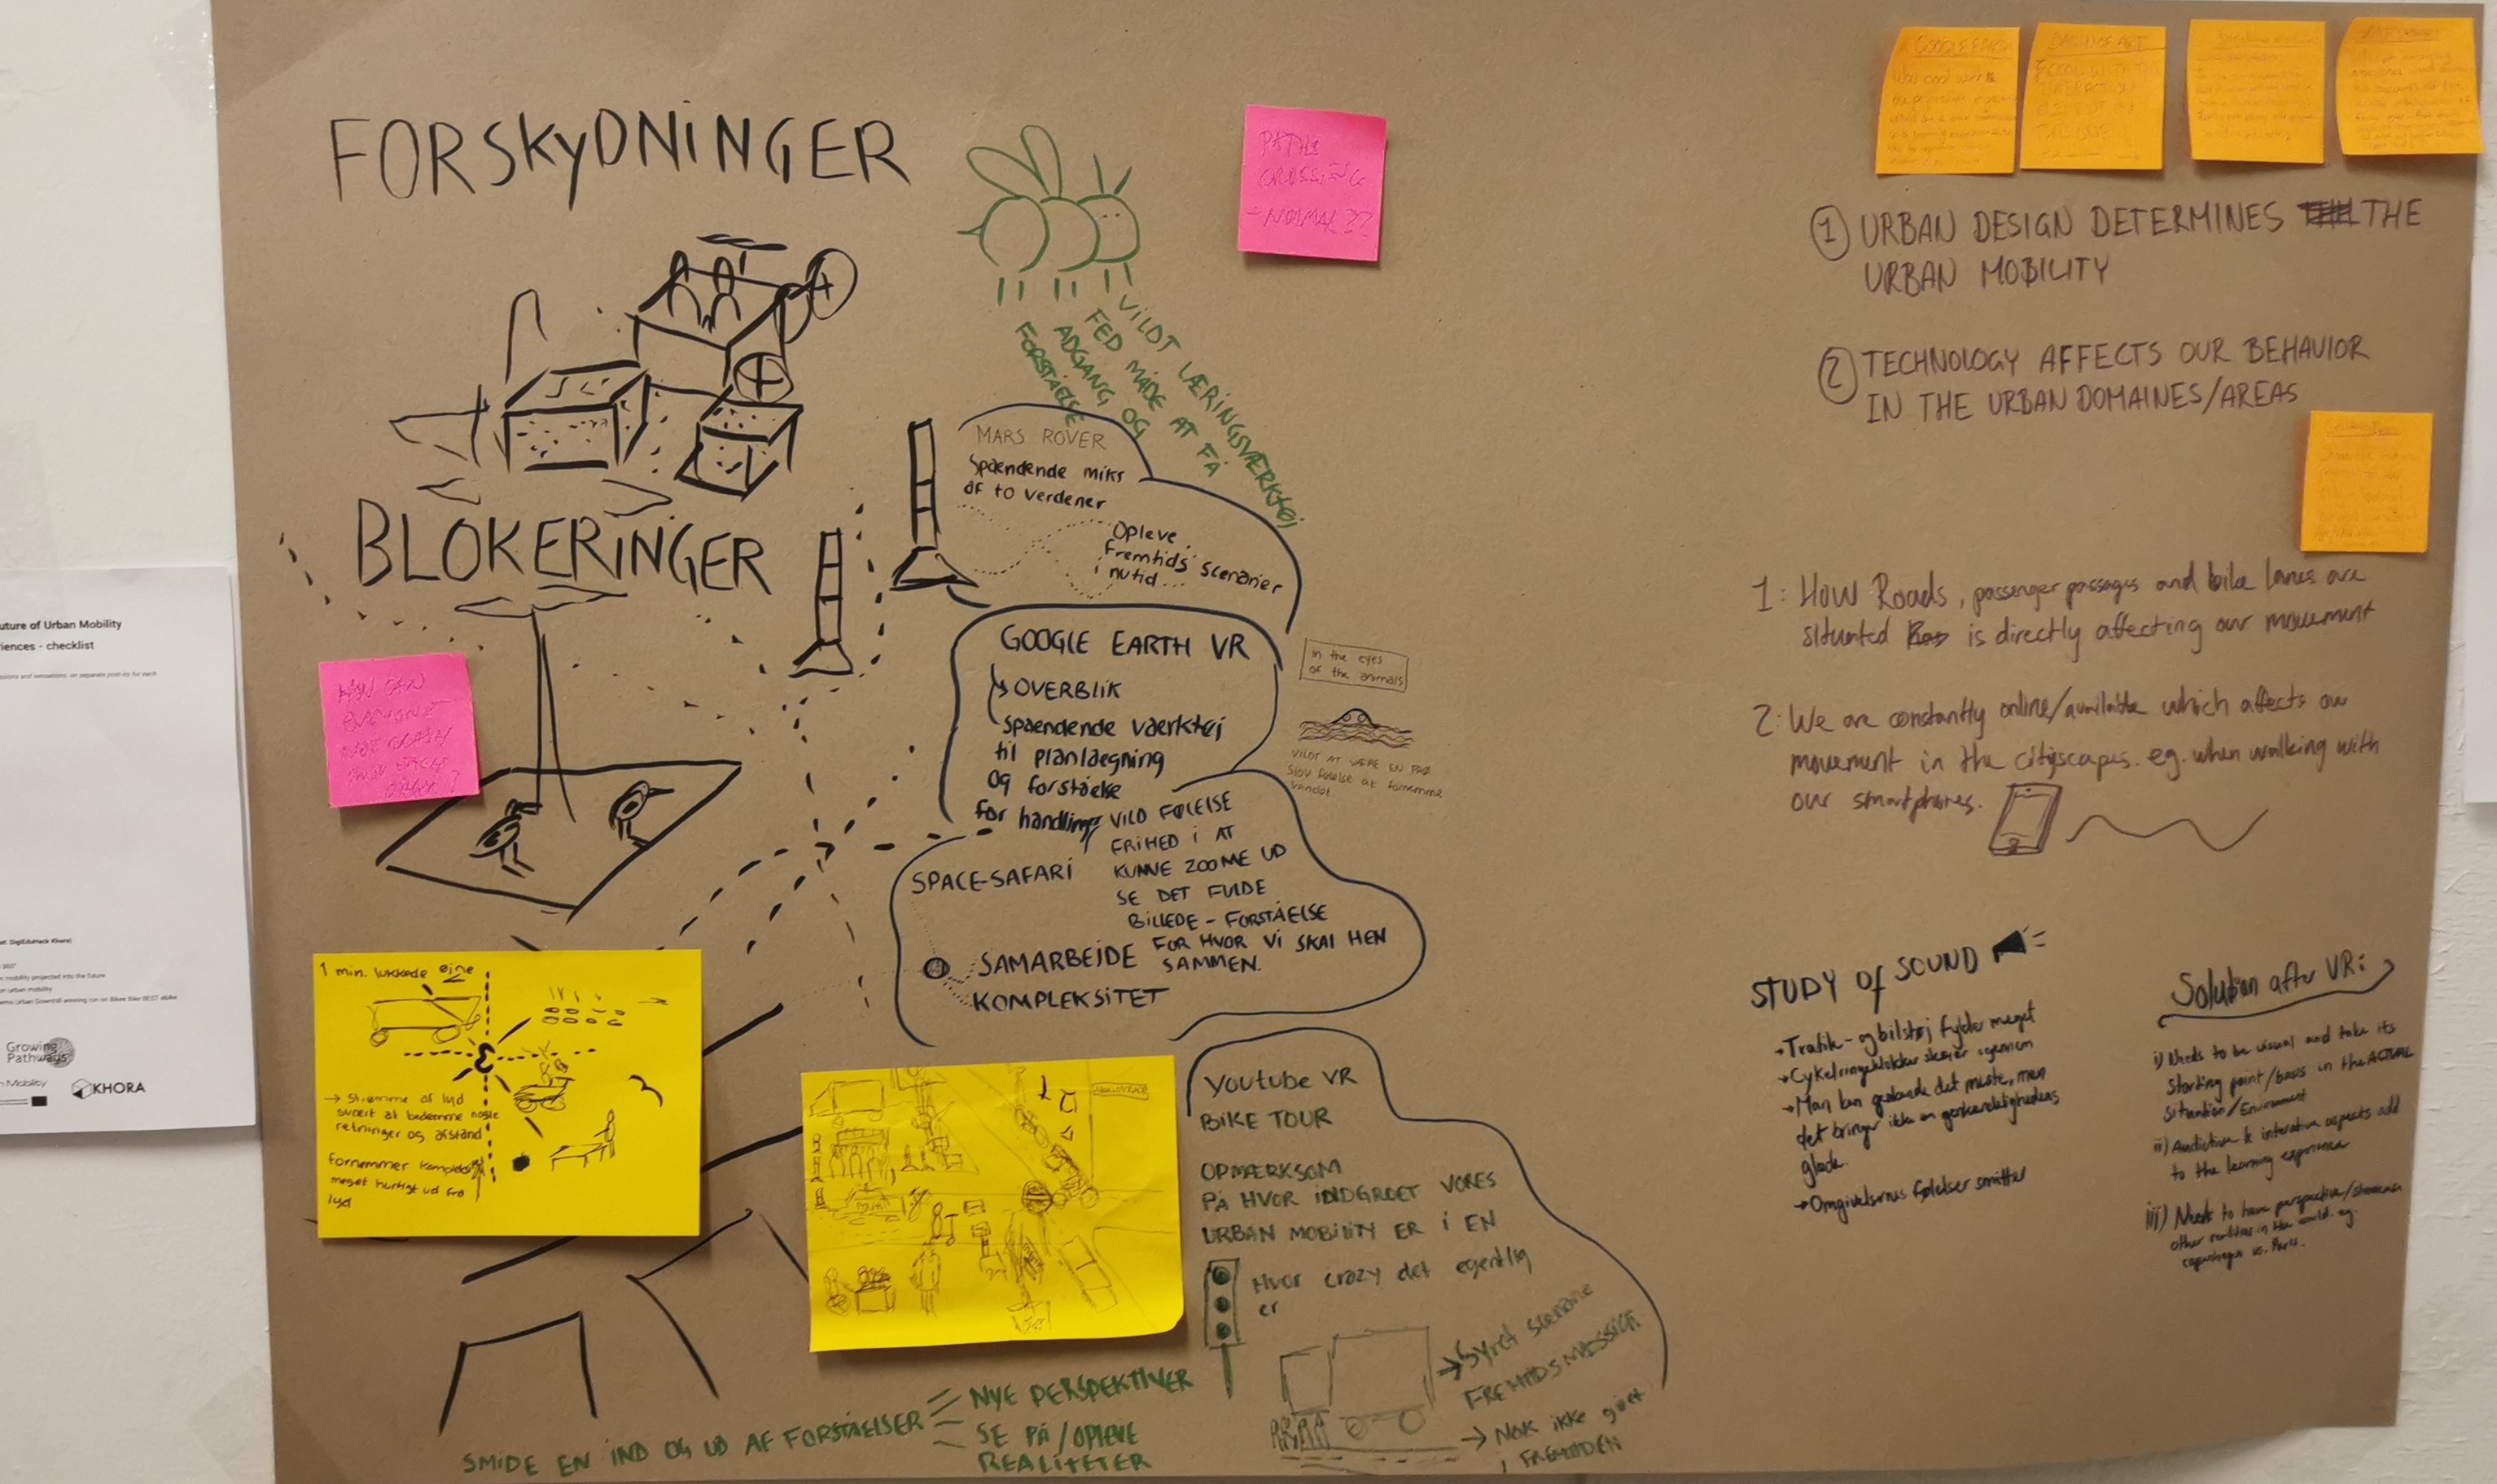 FORSKYDNINGER
BLOKERINGER
uture of Urban Mobility
iences - checklist
essions and sensations on separate post-its for each
mobility projected into the future
on urban mobility
Growing
Pathways
Mobility
KHORA
PATHS
CROSSING
- NORMAL ??
HOW CAN
EVERYONE
NOT CRASH
INTO EACH
OTHER ?
VILDT LÆRINGSVÆRKTØJ
FED MÅDE AT FÅ
ADGANG OG
FORSTÅELSE
MARS ROVER
Spændende miks
af to verdener
Opleve
fremtids scenarier
i nutid...
GOOGLE EARTH VR
OVERBLIK
spændende værktøj
til planlægning
og forståelse
for handling
in the eyes
of the animals
VILDT AT VÆRE EN FRØ
Sjov følelse at fornemme
vandet
VILD FØLELSE
FRIHED I AT
KUNNE ZOOME UD
SE DET FULDE
BILLEDE - FORSTÅELSE
FOR HVOR VI SKAL HEN
SAMMEN.
SPACE-SAFARI
SAMARBEJDE
KOMPLEKSITET
1 min. lukkede øjne
→ Strømme af lyd
svært at bedømme nogle
retninger og afstand
Fornemmer kompleksitet
meget hurtigt ud fra
lyd
Youtube VR
BIKE TOUR
OPMÆRKSOM
PÅ HVOR INDGROET VORES
URBAN MOBILITY ER I EN
Hvor crazy det egentlig
er
→ Syret scenarie
FREMTIDSMÆSSIGT
→ Nok ikke gjort
i FREMTIDEN
SMIDE EN IND OG UD AF FORSTÅELSER
NYE PERSPEKTIVER
SE PÅ/OPLEVE
REALITETER
GOOGLE EARTH
Was cool with
COOL WITH THE
INTERACTION
ELEMENT IN
① URBAN DESIGN DETERMINES THE
URBAN MOBILITY
② TECHNOLOGY AFFECTS OUR BEHAVIOR
IN THE URBAN DOMAINES/AREAS
1: How Roads, passenger passages and bike lanes are
situated is directly affecting our movement
2: We are constantly online/available which affects our
movement in the cityscapes. eg. when walking with
our smartphones.
STUDY of SOUND
→ Trafik- og bilstøj fylder meget
→ Cykelringeklokker skærer igennem
→ Man kan genkende det meste, men
det bringer ikke en genkendelighedens
glæde.
→ Omgivelsernes følelser smitter
Solution after VR:
i) Needs to be visual and take its
starting point/basis in the ACTUAL
situation/Environment
ii) Auditive & interative aspects add
to the learning experience
iii) Needs to have perspective/showcase
other realities in the world. eg.
copenhagen vs. Paris.